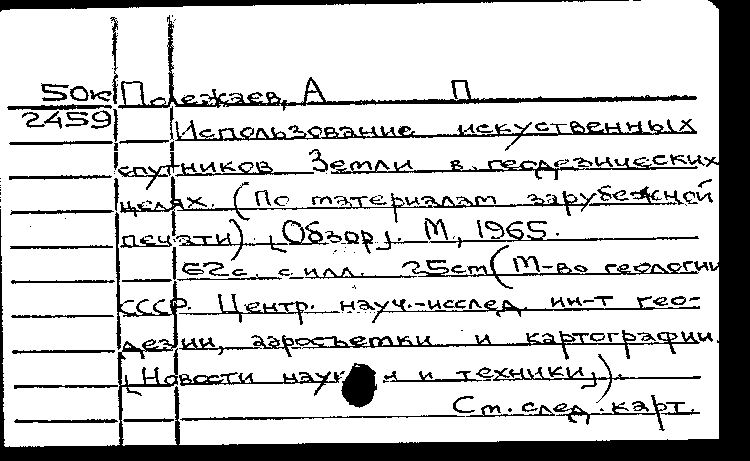 50к Полежаев, А П
2459 Использование искуственных
спутников Земли в геодезических
целях. (По материалам зарубежной
печати). [Обзор]. М., 1965.
62с. с илл. 25см (М-во геологии
СССР. Центр. науч.-исслед. ин-т гео-
дезии, аэросъемки и картографии.
[Новости науки и техники]).
См. след. карт.